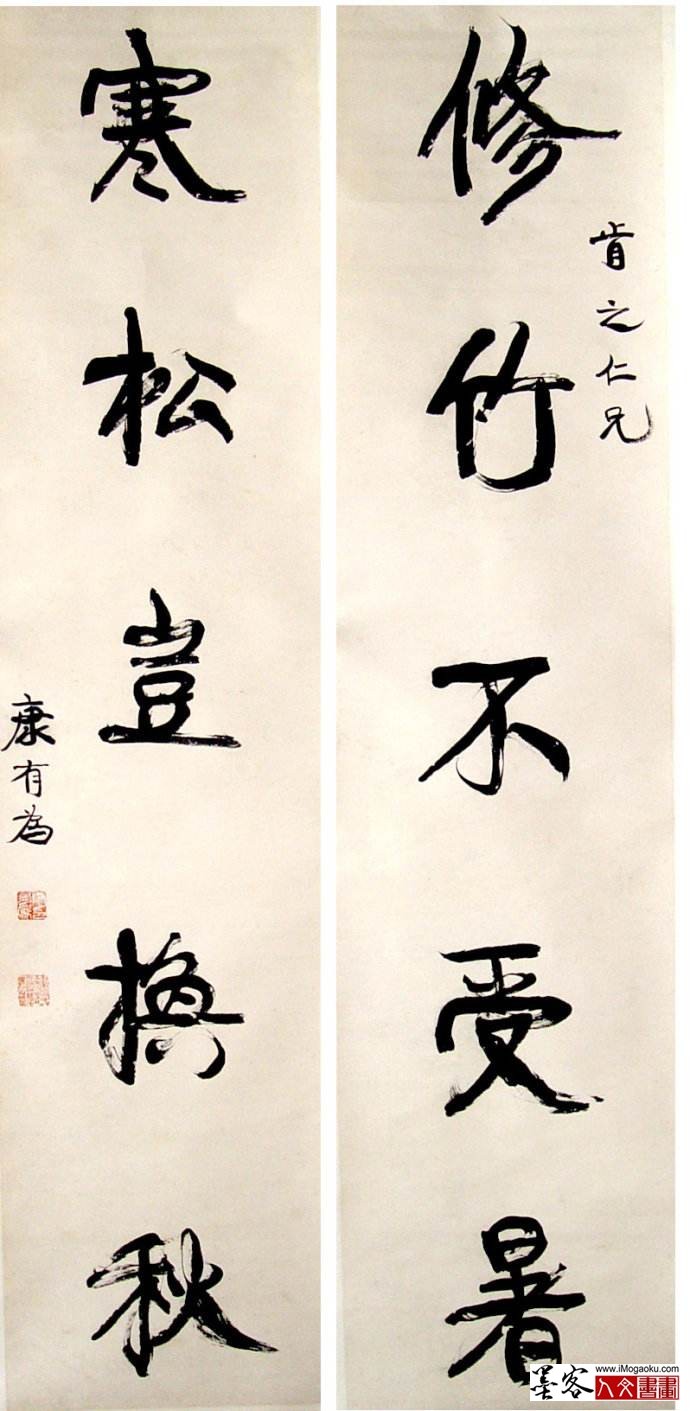 修竹不受暑
肯之仁兄
寒松豈換秋
康有為
www.iMogaoku.com
墨客人文書畫